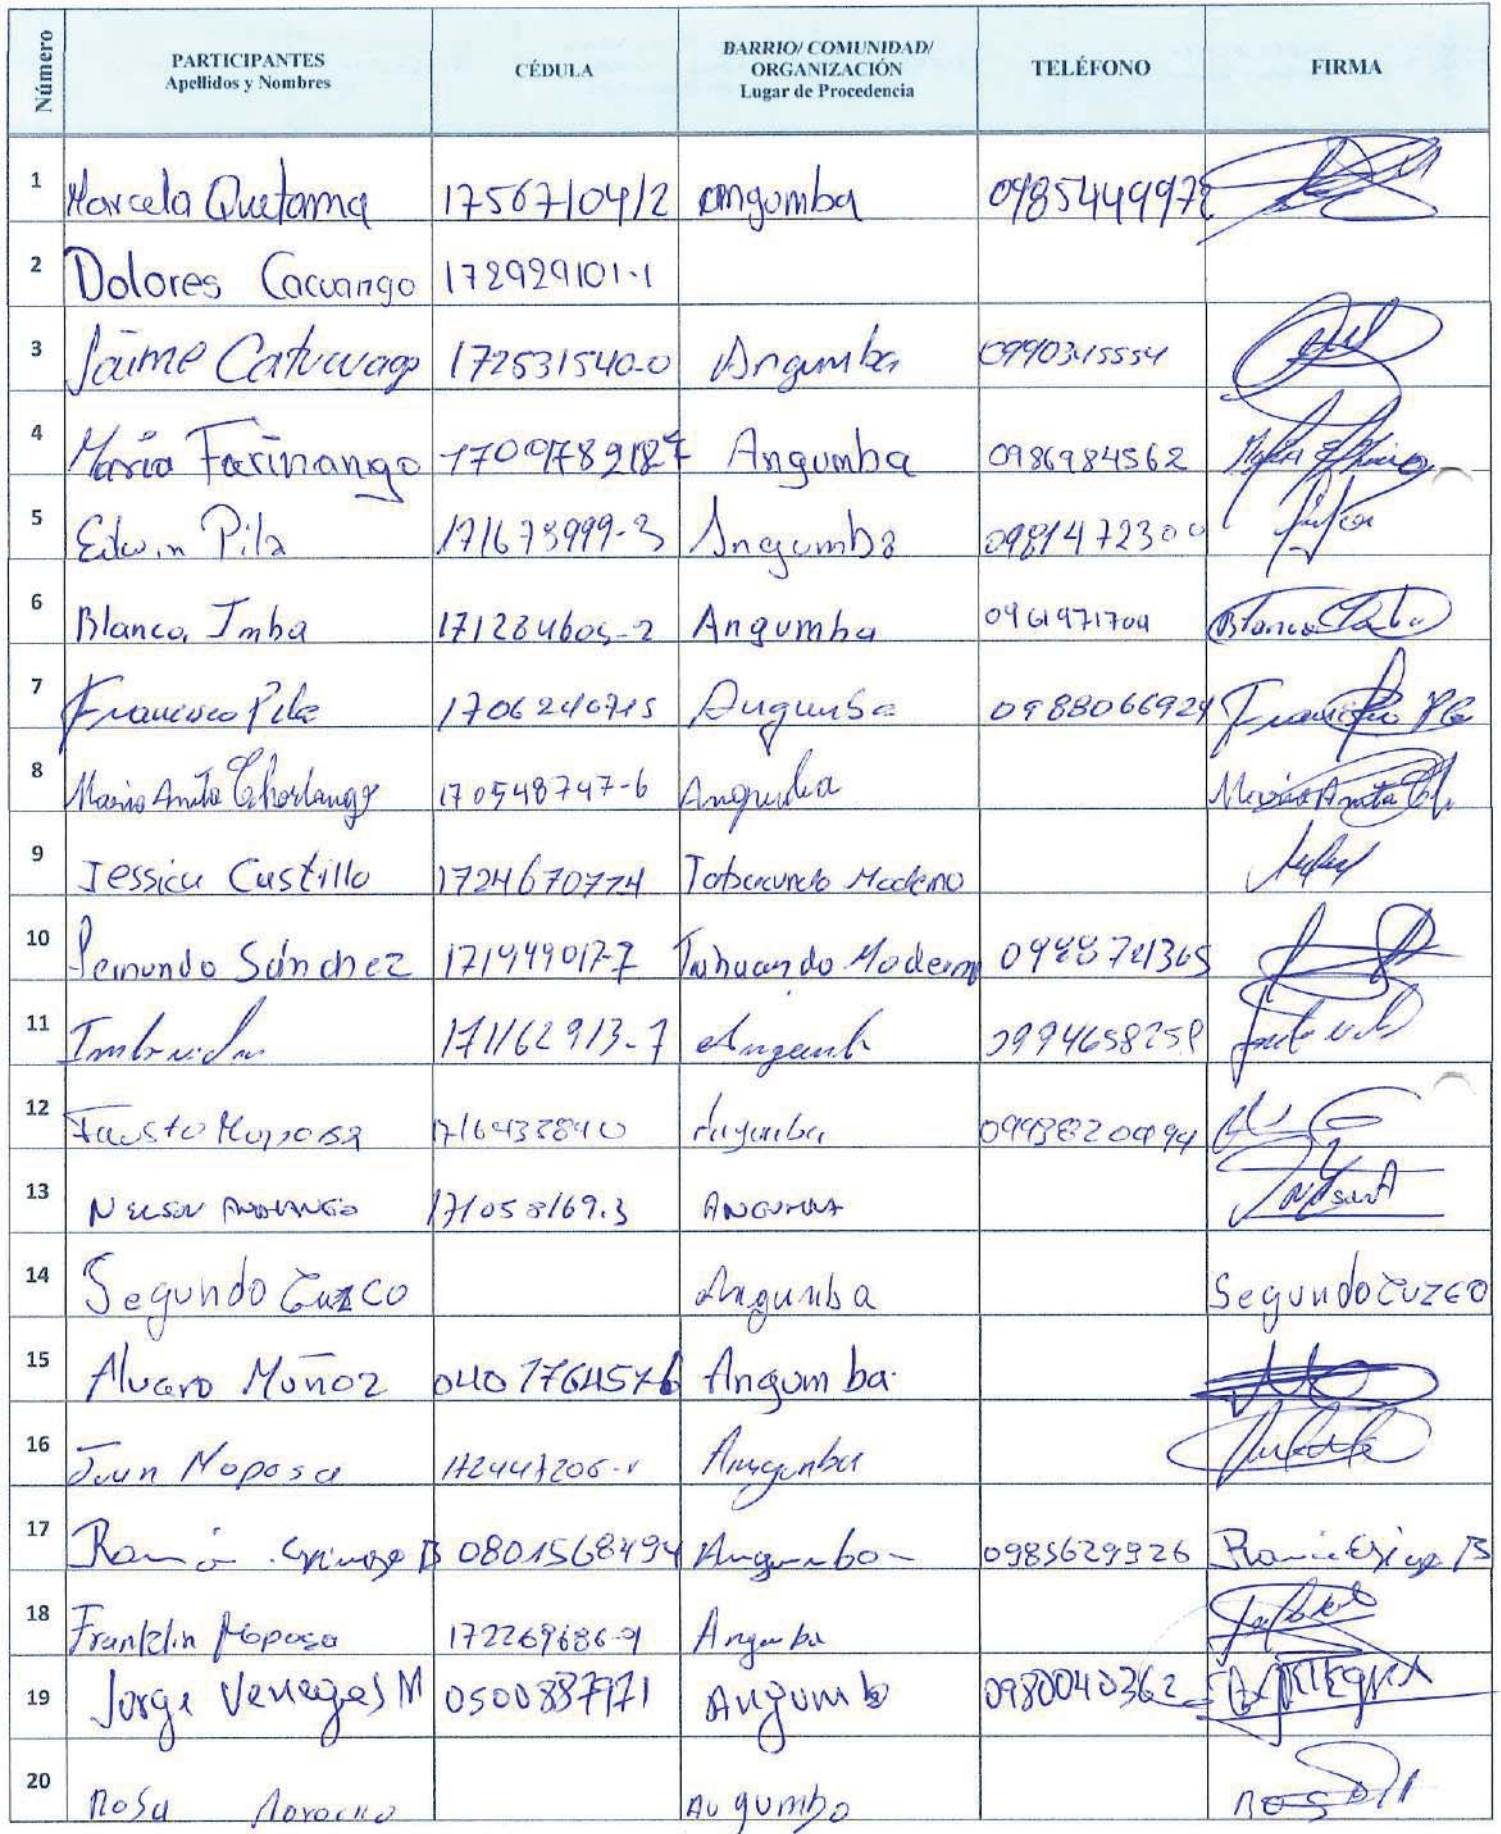 Número PARTICIPANTES Apellidos y Nombres CÉDULA BARRIO/ COMUNIDAD/ ORGANIZACIÓN Lugar de Procedencia TELÉFONO FIRMA
1 Marcela Quetama 1756710412 angumba 0985449972
2 Dolores Cacuango 172929101-1
3 Jaime Catucuago 172531540-0 Angumba
4 María Farinango Angumba 0986984562
5 Edwin Pila 171673999-3 Angumba 0981472300
6 Blanca Imba Angumba 0961971704 Blanca Imba
7 Francisco Pila Angumba 0988066924 Francisco
8 María Anita 170548747-6 Angumba María Anita
9 Jessica Castillo 1724670774 Tabacundo Moderno
10 Fernando Sánchez 171949017-7 Tabacundo Moderno
11 171162913-7 Angumba
12 Fausto Moposa Angumba
13 NELSON ANDRANGO 171058169.3 ANGUMBA
14 Segundo Cuzco Angumba Segundo Cuzco
15 Alvaro Muñoz Angumba
16 Juan Moposa Angumba
17 0801568494 Angumba 0985629926
18 Franklin Moposa 172269686-9 Angumba
19 Jorge Venegas M 0500887971 Angumba 0980040362
20 Rosa Angumba